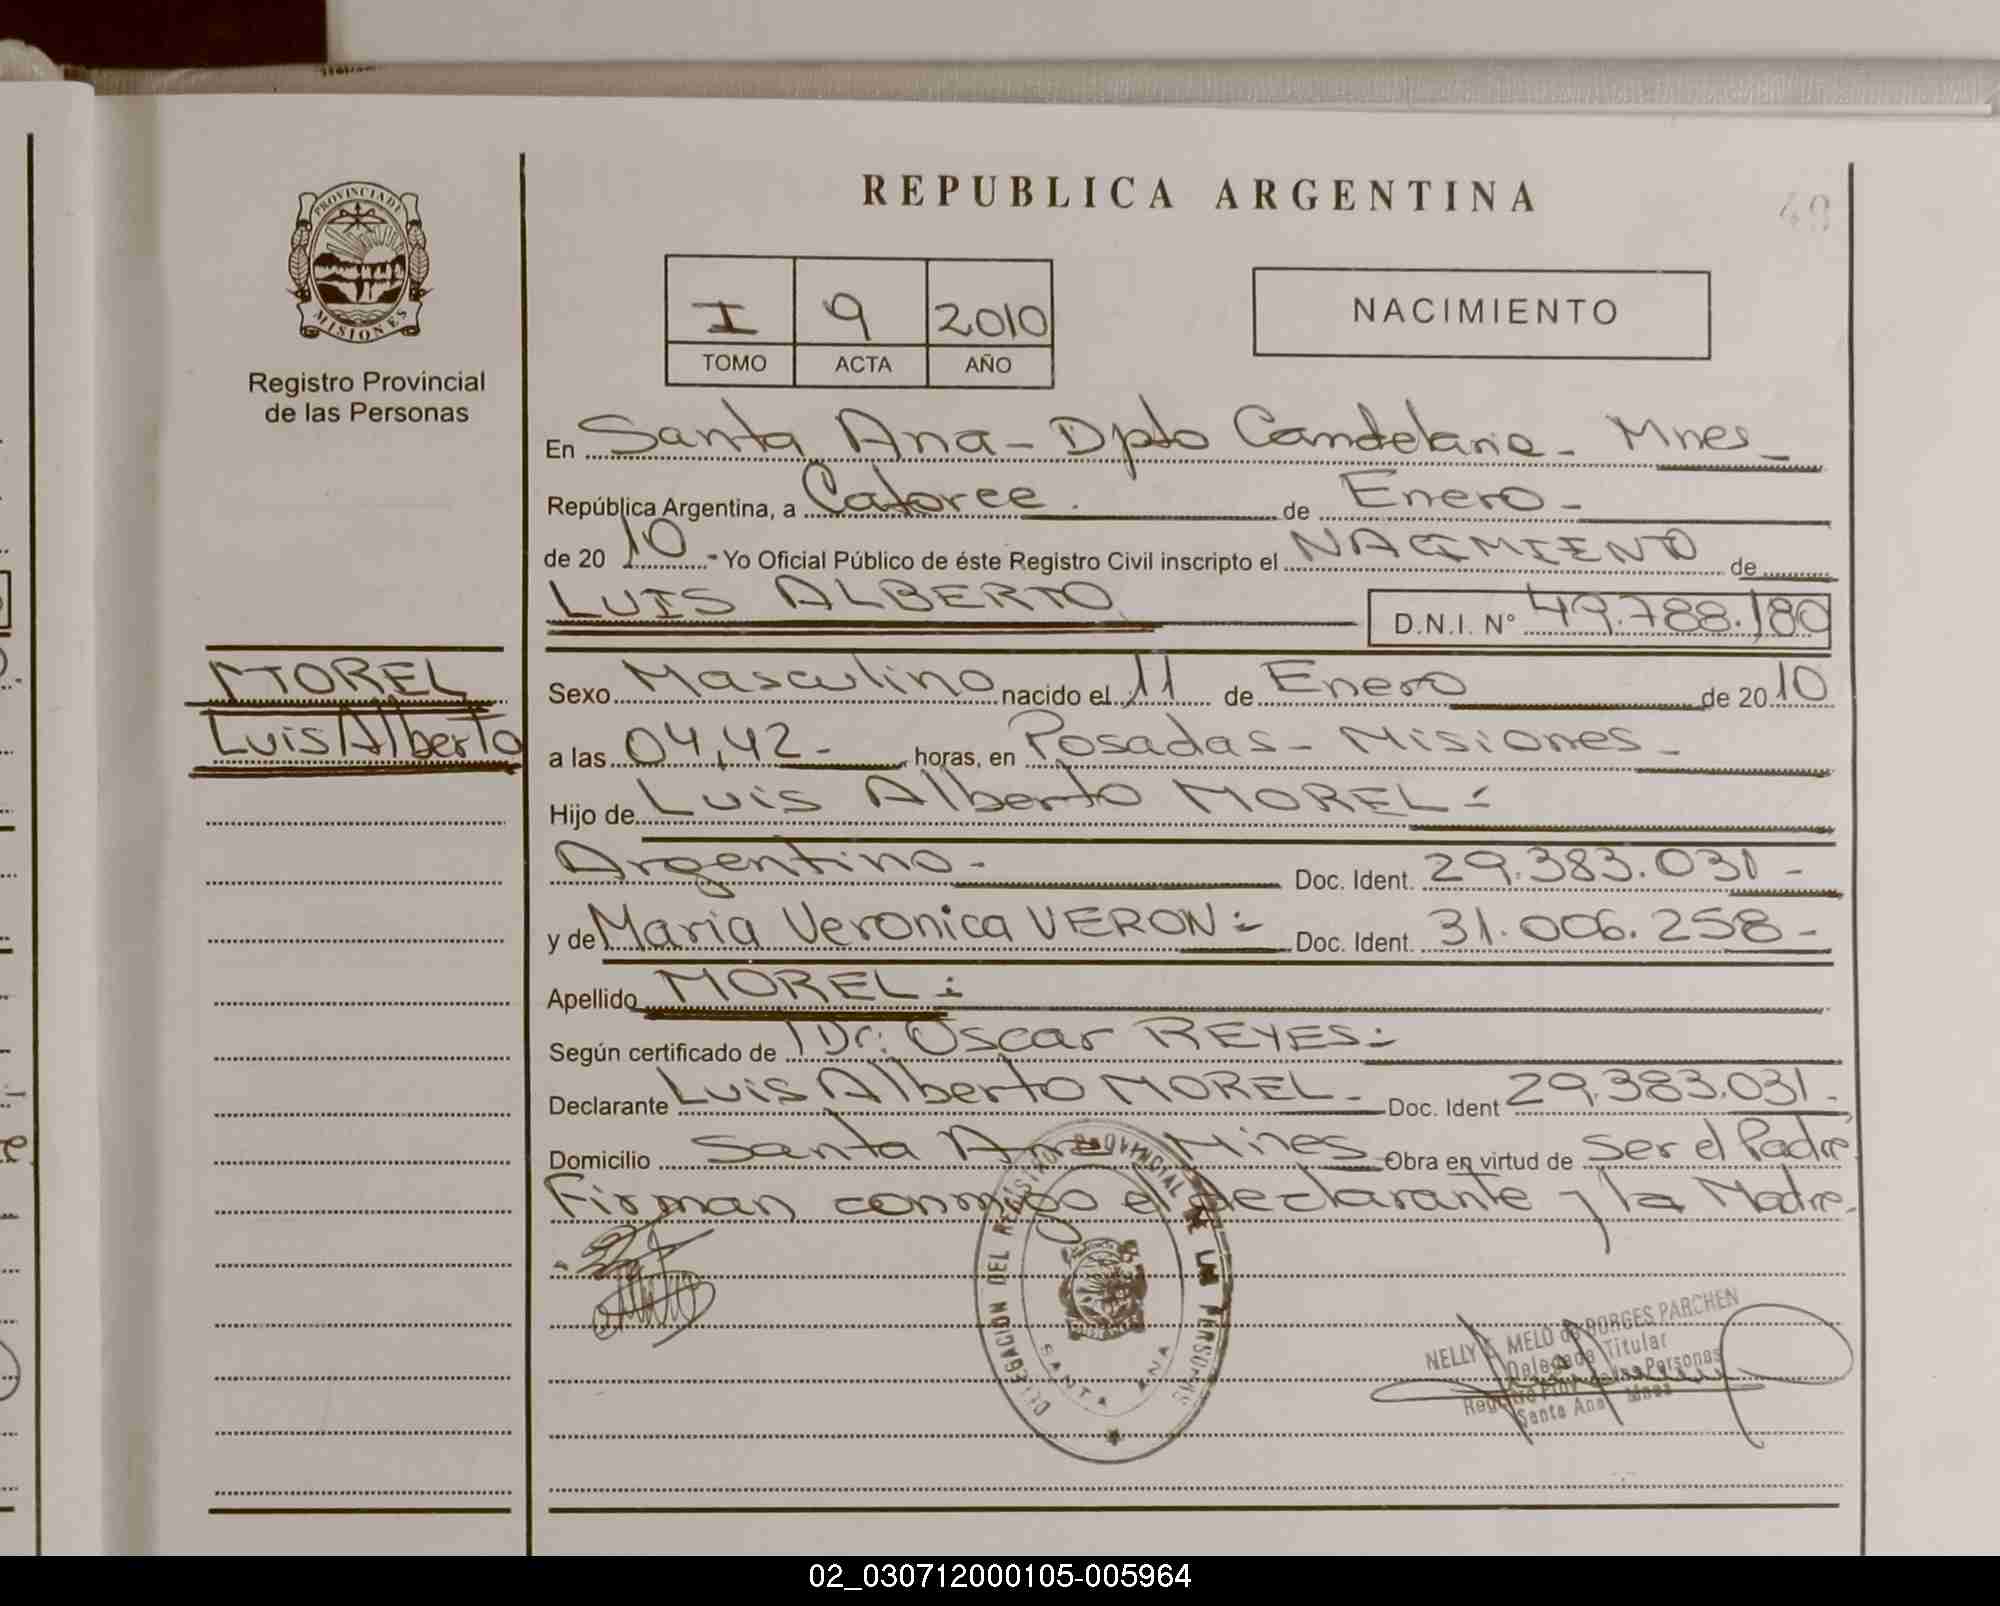 REPUBLICA ARGENTINA
49
PROVINCIA DE
MISIONES
Registro Provincial
de las Personas
I 9 2010
TOMO ACTA AÑO
NACIMIENTO
En Santa Ana - Dpto Candelaria - Mnes -
República Argentina, a Catorce. de Enero -
de 20 10 - Yo Oficial Público de éste Registro Civil inscripto el NACIMIENTO de
LUIS ALBERTO D.N.I. N° 49.788.180
MOREL
Luis Alberto
Sexo Masculino nacido el 11 de Enero de 20 10
a las 04,42 - horas, en Posadas - Misiones -
Hijo de Luis Alberto MOREL -
Argentino - Doc. Ident. 29.383.031 -
y de Maria Veronica VERON :- Doc. Ident. 31.006.258 -
Apellido MOREL :-
Según certificado de Dr: Oscar REYES :-
Declarante Luis Alberto MOREL - Doc. Ident 29.383.031 -
Domicilio Santa Ana Mnes Obra en virtud de ser el Padre
Firman conmigo el declarante y la Madre.
DELEGACION DEL REGISTRO PROVINCIAL DE LAS PERSONAS
SANTA ANA
NELLY MELO de BORGES PARCHEN
Delegada Titular
Registro Prov. de las Personas
Santa Ana Mnes
02_030712000105-005964